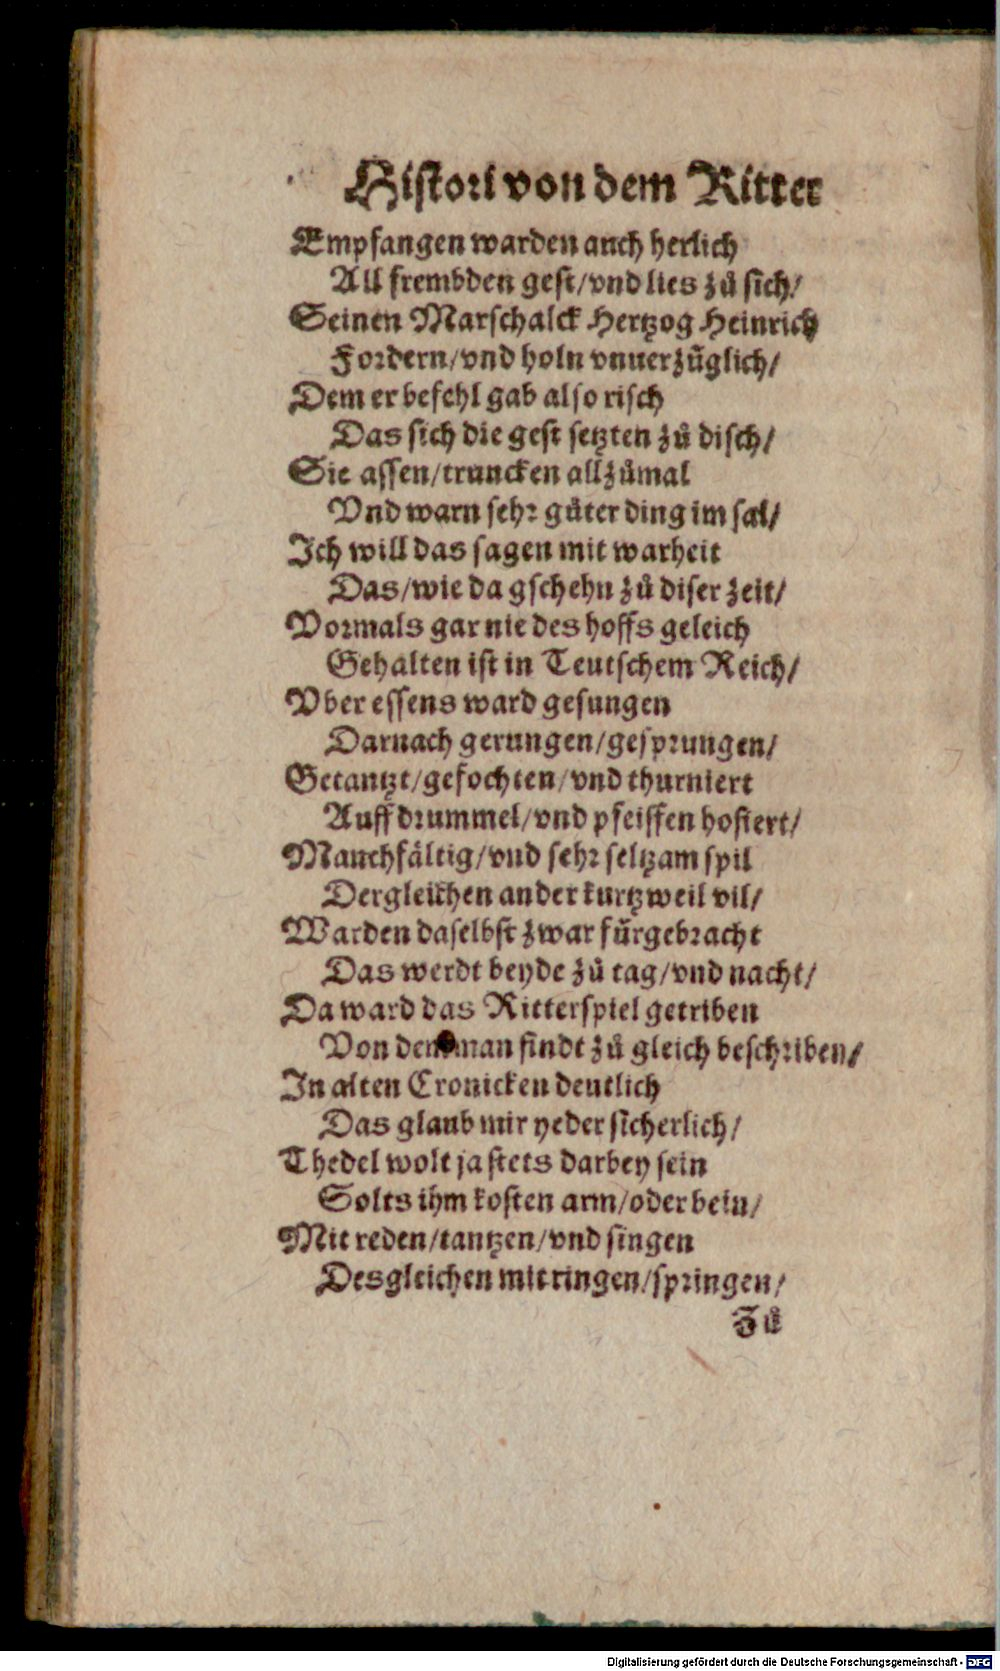 Histori von dem Ritter
Empfangen warden auch herlich
All frembden gest/vnd lies zů sich/
Seinen Marschalck Hertzog Heinrich
Fordern/vnd holn vnuerzüglich/
Dem er befehl gab also risch
Das sich die gest setzten zů disch/
Sie assen/truncken allzůmal
Vnd warn sehr gůter ding im sal/
Ich will das sagen mit warheit
Das/wie da gschehn zů diser zeit/
Vormals gar nie des hoffs geleich
Gehalten ist in Teutschem Reich/
Vber essens ward gesungen
Darnach gerungen/gesprungen/
Getantzt/gefochten/vnd thurniert
Auff drummel/vnd pfeiffen hofiert/
Manchfältig/vnd sehr seltzam spil
Dergleichen ander kurtzweil vil/
Warden daselbst zwar fürgebracht
Das werdt beyde zů tag/vnd nacht/
Da ward das Ritterspiel getriben
Von dem man findt zů gleich beschriben/
In alten Cronicken deutlich
Das glaub mir yeder sicherlich/
Thedel wolt ja stets darbey sein
Solts ihm kosten arm/oder bein/
Mit reden/tantzen/vnd singen
Desgleichen mit ringen/springen/
Zů
Digitalisierung gefördert durch die Deutsche Forschungsgemeinschaft - DFG